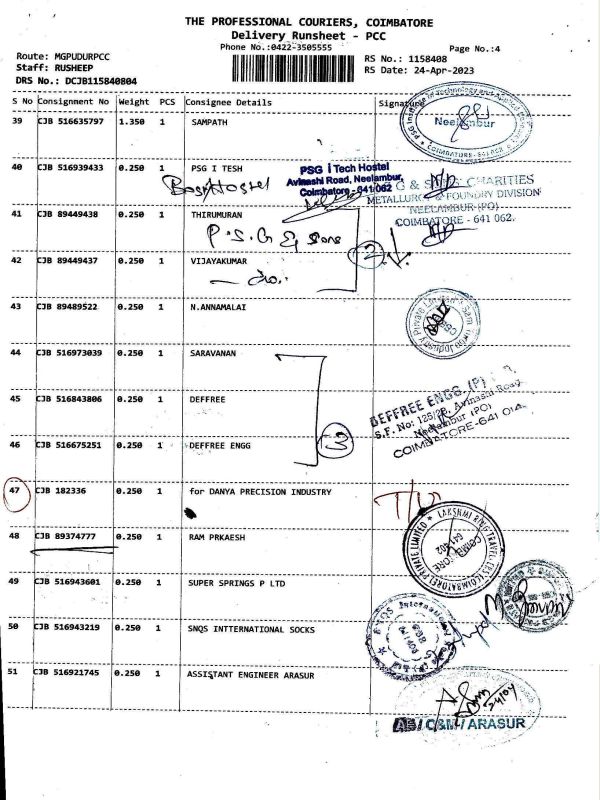 THE PROFESSIONAL COURIERS, COIMBATORE
Delivery Runsheet - PCC
Phone No.:0422-3505555
Page No.:4
Route: MGPUDURPCC
Staff: RUSHEEP
DRS No.: DCJB115840804
RS No.: 1158408
RS Date: 24-Apr-2023
S No Consignment No Weight PCS Consignee Details Signature
39 CJB 516635797 1.350 1 SAMPATH
Neelambur
COIMBATORE
40 CJB 516939433 0.250 1 PSG I TESH
Boys Hostel
PSG iTech Hostel
Avinashi Road, Neelambur,
Coimbatore - 641 062
G & SONS' CHARITIES
METALLURGY & FOUNDRY DIVISION
NEELAMBUR (PO)
COIMBATORE - 641 062.
41 CJB 89449438 0.250 1 THIRUMURAN
P.S.G & Sons
2
42 CJB 89449437 0.250 1 VIJAYAKUMAR
— do.
43 CJB 89489522 0.250 1 N.ANNAMALAI
44 CJB 516973039 0.250 1 SARAVANAN
45 CJB 516843806 0.250 1 DEFFREE
DEFFREE ENGG. (P)
S.F. No: 125/2B, Avinashi Road
Neelambur (PO)
COIMBATORE-641 014.
3
46 CJB 516675251 0.250 1 DEFFREE ENGG
47 CJB 182336 0.250 1 for DANYA PRECISION INDUSTRY
48 CJB 89374777 0.250 1 RAM PRKAESH
LAKSHMI RING TRAVELLERS (COIMBATORE) PRIVATE LIMITED
COIMBATORE
641 402
49 CJB 516943601 0.250 1 SUPER SPRINGS P LTD
50 CJB 516943219 0.250 1 SNQS INTTERNATIONAL SOCKS
SNQS International
51 CJB 516921745 0.250 1 ASSISTANT ENGINEER ARASUR
24/04
AE/C&M/ARASUR